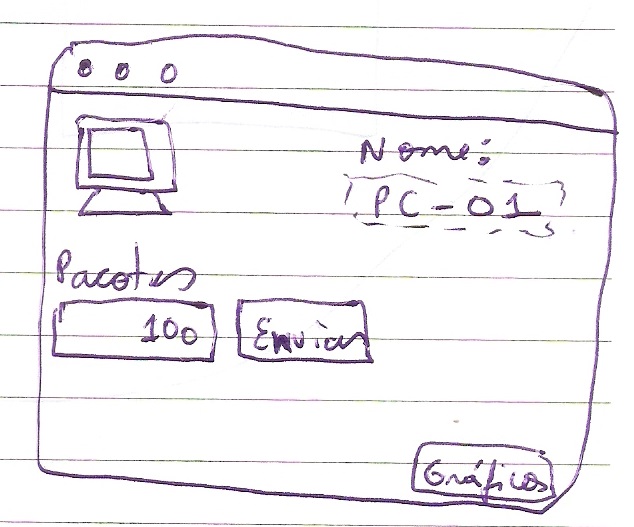 Nome:
PC-01
Pacotes
100
Enviar
Gráficos